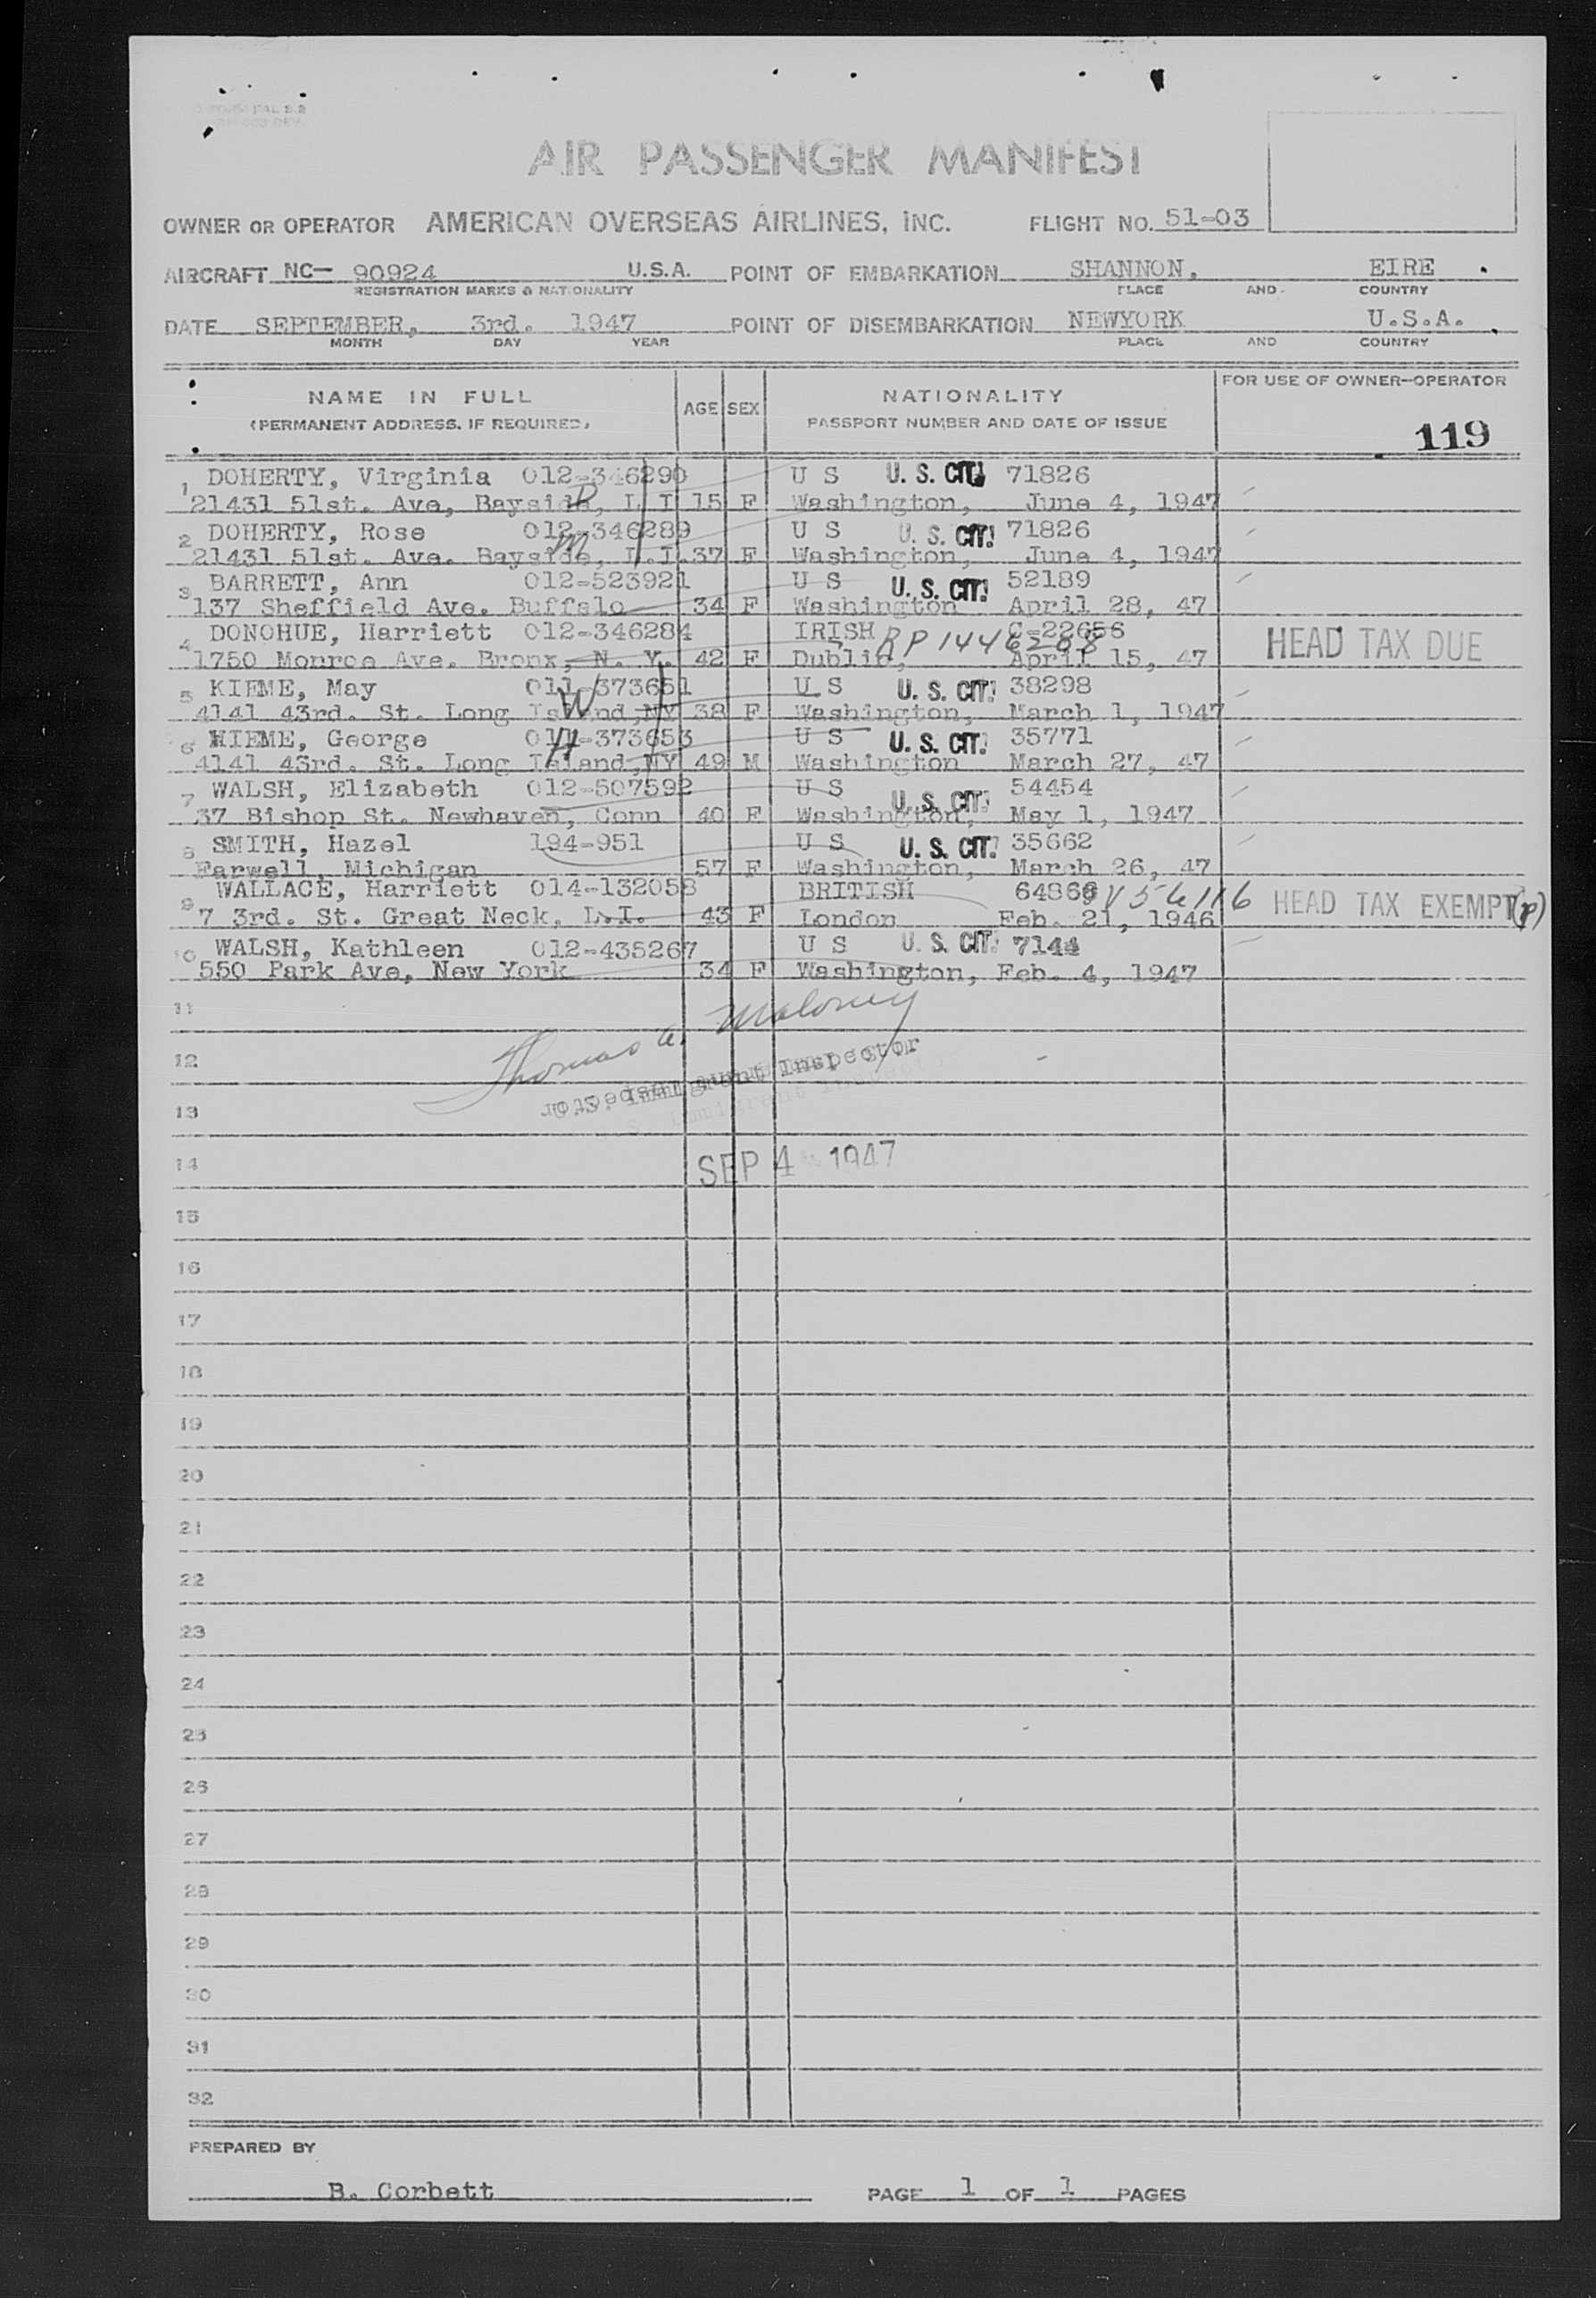 AIR PASSENGER MANIFEST
OWNER OR OPERATOR AMERICAN OVERSEAS AIRLINES, INC. FLIGHT NO. 51-03
AIRCRAFT NC- 90924 U.S.A. POINT OF EMBARKATION SHANNON. EIRE
REGISTRATION MARKS & NATIONALITY PLACE AND COUNTRY
DATE SEPTEMBER, 3rd. 1947 POINT OF DISEMBARKATION NEWYORK U.S.A.
MONTH DAY YEAR PLACE AND COUNTRY
NAME IN FULL AGE SEX NATIONALITY FOR USE OF OWNER-OPERATOR
(PERMANENT ADDRESS, IF REQUIRED) PASSPORT NUMBER AND DATE OF ISSUE 119
1 DOHERTY, Virginia 012-346290 U S U. S. CIT. 71826
21431 51st. Ave, Bayside, L I 15 F Washington, June 4, 1947
2 DOHERTY, Rose 012-346289 U S U. S. CIT. 71826
21431 51st. Ave. Bayside, L.I. 37 F Washington, June 4, 1947
3 BARRETT, Ann 012-523921 U S U. S. CIT. 52189
137 Sheffield Ave. Buffalo 34 F Washington April 28, 47
4 DONOHUE, Harriett 012-346284 IRISH RP 1446208 C-22656 HEAD TAX DUE
1750 Monroe Ave. Bronx, N. Y. 42 F Dublin, April 15, 47
5 KIEME, May 011-373651 U S U. S. CIT. 38298
4141 43rd. St. Long Island, NY 38 F Washington, March 1, 1947
6 KIEME, George 011-373653 U S U. S. CIT. 35771
4141 43rd. St. Long Island, NY 49 M Washington March 27, 47
7 WALSH, Elizabeth 012-507592 U S U. S. CIT. 54454
37 Bishop St. Newhaven, Conn 40 F Washington, May 1, 1947
8 SMITH, Hazel 194-951 U S U. S. CIT. 35662
Farwell, Michigan 57 F Washington, March 26, 47
9 WALLACE, Harriett 014-132058 BRITISH 64868 V 56116 HEAD TAX EXEMPT (P)
7 3rd. St. Great Neck, L.I. 43 F London Feb. 21, 1946
10 WALSH, Kathleen 012-435267 U S U. S. CIT. 7144
550 Park Ave, New York 34 F Washington, Feb. 4, 1947
11
Thomas A. Maloney
12
Immigrant Inspector
13
14 SEP 4 1947
15
16
17
18
19
20
21
22
23
24
25
26
27
28
29
30
31
32
PREPARED BY
B. Corbett PAGE 1 OF 1 PAGES